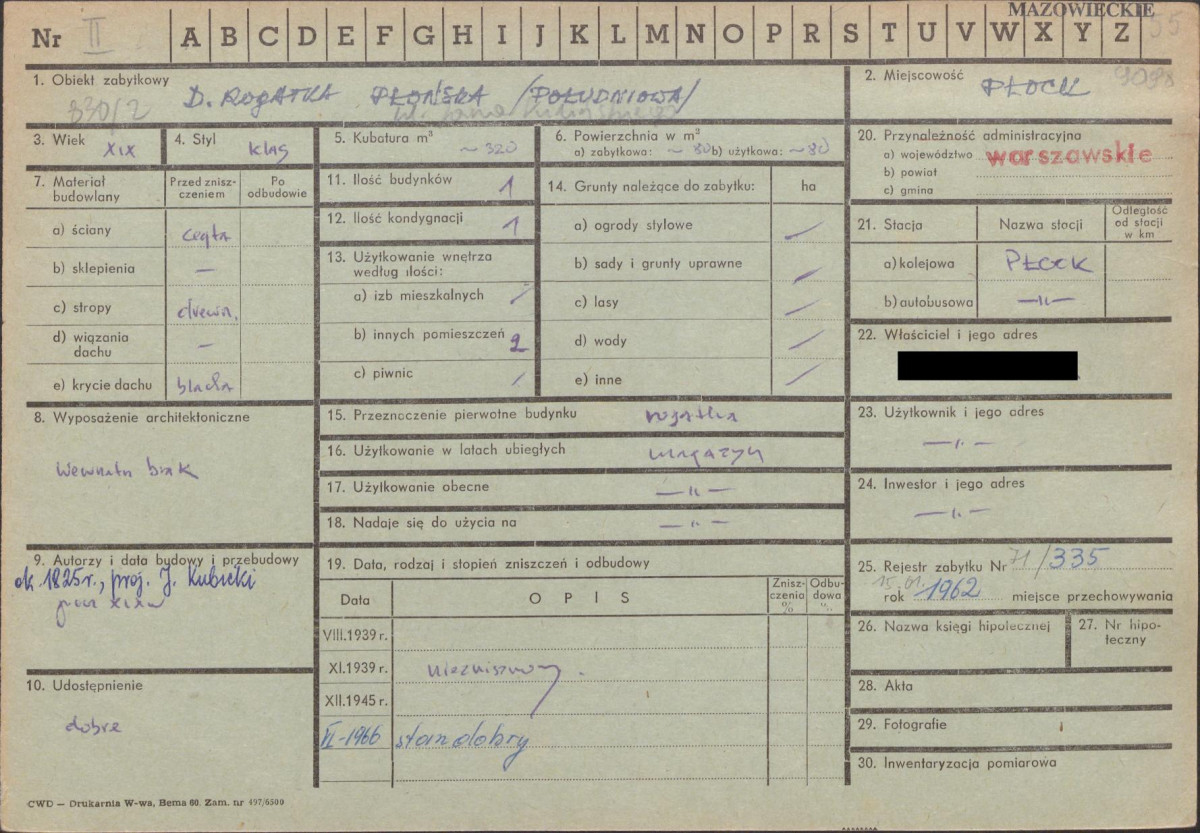 MAZOWIECKIE
Nr II A B C D E F G H I J K L M N O P R S T U V W X Y Z 55
1. Obiekt zabytkowy D. ROGATKA PŁOŃSKA /POŁUDNIOWA/
830/2
2. Miejscowość PŁOCK 9098
3. Wiek XIX
4. Styl klas
5. Kubatura m³ ~ 320
6. Powierzchnia w m²
a) zabytkowa: ~ 80 b) użytkowa: ~ 80
20. Przynależność administracyjna
a) województwo warszawskie
b) powiat
c) gmina
7. Materiał budowlany
Przed zniszczeniem
Po odbudowie
a) ściany cegła
b) sklepienia —
c) stropy drewn.
d) wiązania dachu —
e) krycie dachu blacha
11. Ilość budynków 1
12. Ilość kondygnacji 1
13. Użytkowanie wnętrza według ilości:
a) izb mieszkalnych /
b) innych pomieszczeń 2
c) piwnic /
14. Grunty należące do zabytku: ha
a) ogrody stylowe /
b) sady i grunty uprawne /
c) lasy /
d) wody /
e) inne /
21. Stacja
Nazwa stacji
Odległość od stacji w km
a) kolejowa PŁOCK
b) autobusowa —„—
22. Właściciel i jego adres
8. Wyposażenie architektoniczne
wewnątrz brak
15. Przeznaczenie pierwotne budynku rogatka
16. Użytkowanie w latach ubiegłych magazyn
17. Użytkowanie obecne —„—
18. Nadaje się do użycia na —„—
23. Użytkownik i jego adres
—„—
24. Inwestor i jego adres
—„—
9. Autorzy i data budowy i przebudowy
ok. 1825 r., proj. J. Kubicki
pocz XIX w
19. Data, rodzaj i stopień zniszczeń i odbudowy
Data O P I S Zniszczenia % Odbudowa %
VIII.1939 r.
XI.1939 r. niezniszczony.
XII.1945 r.
VI-1966 stan dobry
25. Rejestr zabytku Nr 71/335
15.01.
rok 1962 miejsce przechowywania
26. Nazwa księgi hipotecznej
27. Nr hipoteczny
10. Udostępnienie
dobre
28. Akta
29. Fotografie
30. Inwentaryzacja pomiarowa
CWD — Drukarnia W-wa, Bema 60. Zam. nr 497/6500